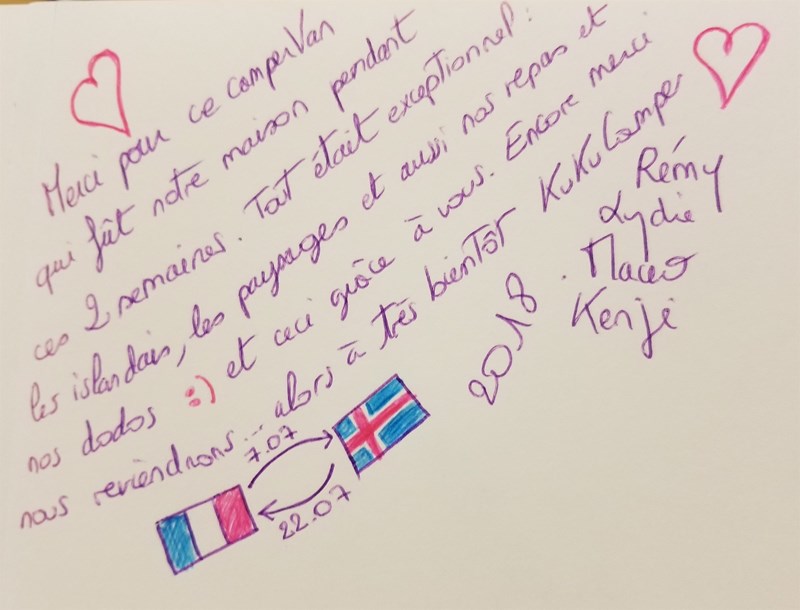 Merci pour ce camperVan
qui fût notre maison pendant
ces 2 semaines. Tout était exceptionnel :
les islandais, les paysages et aussi nos repas et
nos dodos :) et ceci grâce à vous. Encore merci
nous reviendrons... alors à très bientôt KuKuCamper
Rémy
Lydie
Maceo
Kenji
2018.
7.07
22.07